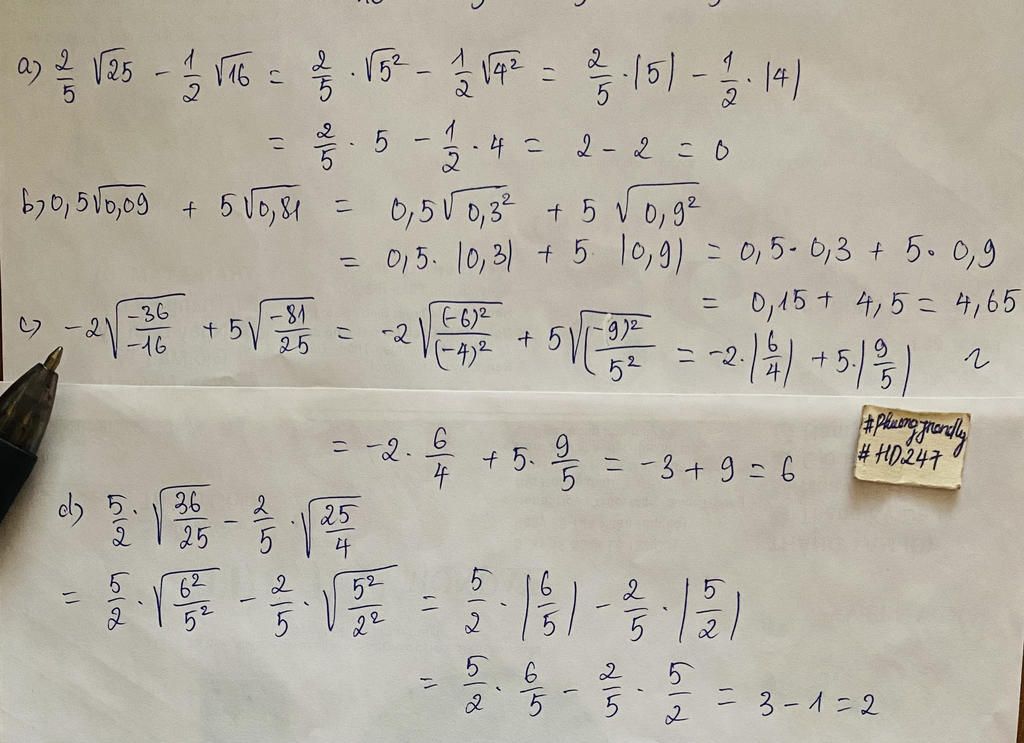 a) 2/5 √25 - 1/2 √16 = 2/5 · √5² - 1/2 √4² = 2/5 · |5| - 1/2 · |4|
= 2/5 · 5 - 1/2 · 4 = 2 - 2 = 0
b) 0,5√0,09 + 5√0,81 = 0,5√0,3² + 5√0,9²
= 0,5 · |0,3| + 5 · |0,9| = 0,5 · 0,3 + 5 · 0,9
= 0,15 + 4,5 = 4,65
c) -2√(-36/-16) + 5√(-81/25) = -2√((-6)²/(-4)²) + 5√((-9)²/5²) = -2 · |6/4| + 5 · |9/5|
#HD247
= -2 · 6/4 + 5 · 9/5 = -3 + 9 = 6
d) 5/2 · √(36/25) - 2/5 · √(25/4)
= 5/2 · √(6²/5²) - 2/5 · √(5²/2²) = 5/2 · |6/5| - 2/5 · |5/2|
= 5/2 · 6/5 - 2/5 · 5/2 = 3 - 1 = 2